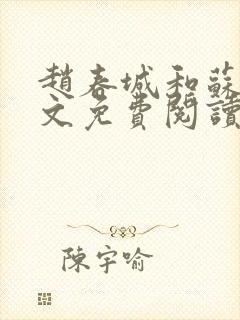 趙春城和蘇
文免費閱讀
陳宇喻